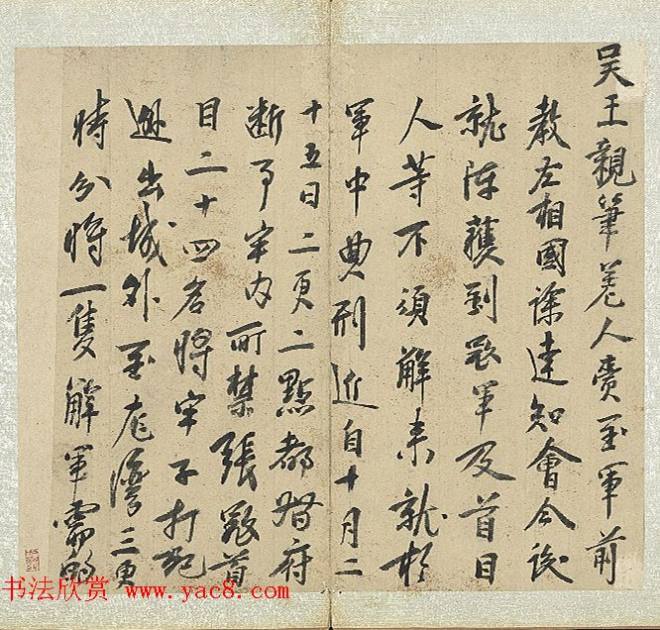 吳王親筆差人賫至軍前
教左相國徐達知會今後
就陣獲到寇軍及首目
人等不須解來就於
軍中典刑近自十月二
十五日二更二點都督府
斷事牢內所禁張寇首
目二十四名將牢子打死
出城外至龍灣三更
時分將一隻解軍需的
书法欣赏 www.yac8.com